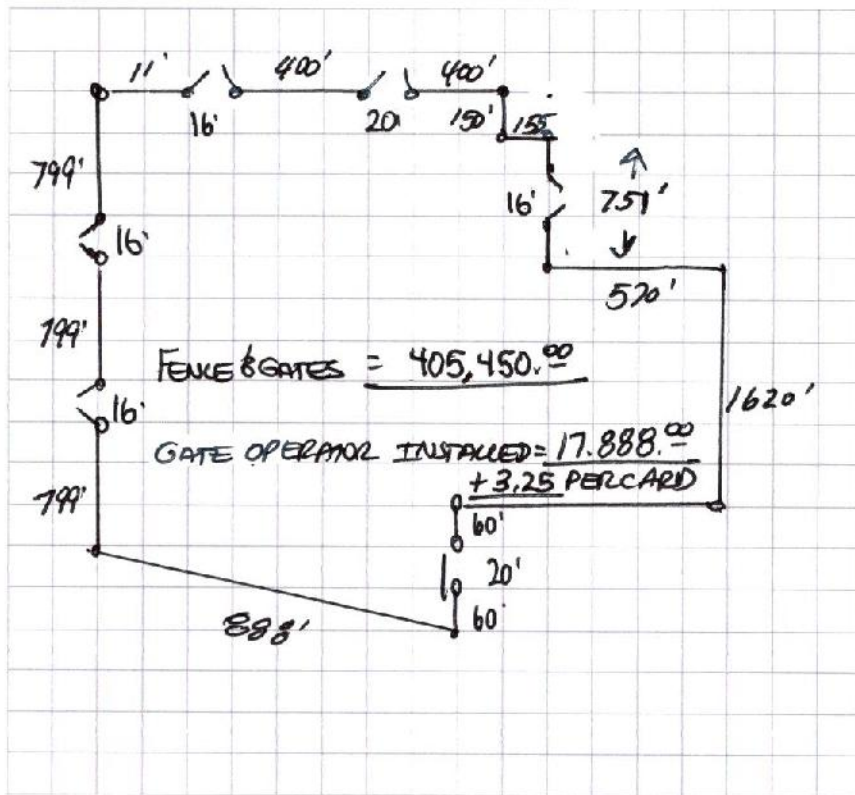 11' 400' 400'
16' 20' 150' 155
799' 16' 751'
16'
520'
799'
FENCE & GATES = 405,450.00
1620'
16'
GATE OPERATOR INSTALLED = 17.888.00
+ 3.25 PER CARD
799'
60'
20'
60'
888'